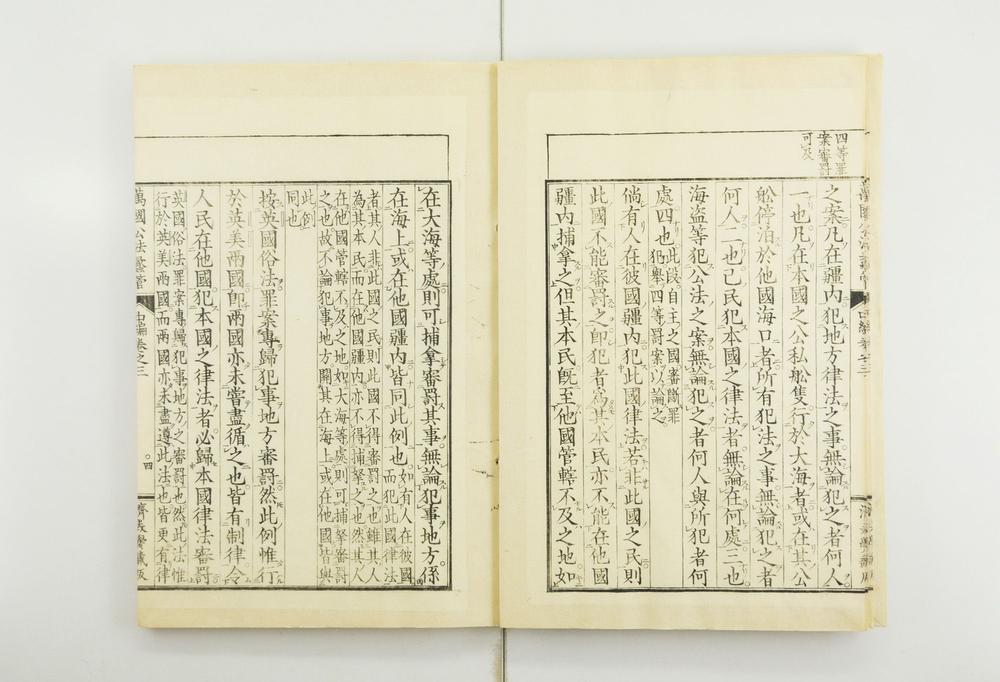 四等罪
案審罰
可及
之案凡在疆内犯地方律法之事無論犯之者何人
一也凡在本國之公私舩隻行於大海者或在其公
舩停泊於他國海口者所有犯法之事無論犯之者
何人二也己民犯本國之律法者無論在何處三也
海盜等犯公法之案無論犯之者何人與所犯者何
處四也此段自主之國審斷罪
犯舉四等罰案以論之
倘有人在彼國疆内犯此國律法若非此國之民則
此國不能審罰之即犯者為其本民亦不能在他國
疆内捕拿之但其本民旣至他國管轄不及之地如
在大海等處則可捕拿審罰其事無論犯事地方係
在海上或在他國疆内皆同此例也如有人在彼國
而犯此國律法
者其人非此國之民則此國不得審罰之也雖其人
為其本民而在他國疆内亦不得捕拏之也然其人
在他國管轄不及之地如大海等處則可捕拏審罰
之也故不論犯事地方關其在海上或在他國皆與
此例
同也
按英國俗法罪案專歸犯事地方審罰然此例惟行
於英美兩國即兩國亦未嘗盡循之也皆有制律令
人民在他國犯本國之律法者必歸本國律法審罰
英國俗法罪案專歸犯事地方之審罰也然此法惟
行於英美兩國而兩國亦未盡遵此法也皆更有律
萬國公法蠡管
中編卷之三
四
濟美黌藏版